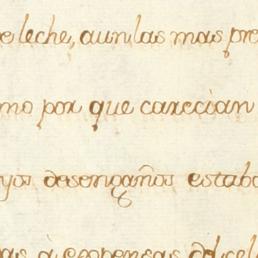 e leche, aun las mas pre
mo por que carecian
yos desengaños estaba
as à expensas del cel